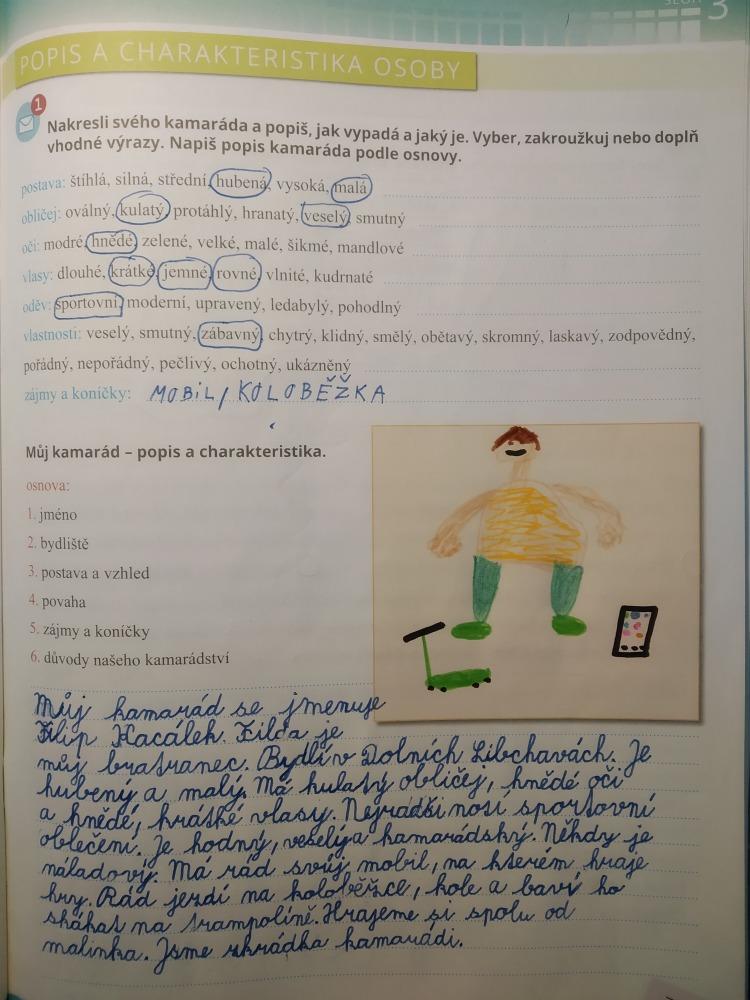 3
POPIS A CHARAKTERISTIKA OSOBY
1
Nakresli svého kamaráda a popiš, jak vypadá a jaký je. Vyber, zakroužkuj nebo doplň
vhodné výrazy. Napiš popis kamaráda podle osnovy.
postava: štíhlá, silná, střední, hubená, vysoká, malá
obličej: oválný, kulatý, protáhlý, hranatý, veselý, smutný
oči: modré, hnědé, zelené, velké, malé, šikmé, mandlové
vlasy: dlouhé, krátké, jemné, rovné, vlnité, kudrnaté
oděv: sportovní, moderní, upravený, ledabylý, pohodlný
vlastnosti: veselý, smutný, zábavný, chytrý, klidný, smělý, obětavý, skromný, laskavý, zodpovědný,
pořádný, nepořádný, pečlivý, ochotný, ukázněný
zájmy a koníčky: MOBIL, KOLOBĚŽKA
Můj kamarád – popis a charakteristika.
osnova:
1. jméno
2. bydliště
3. postava a vzhled
4. povaha
5. zájmy a koníčky
6. důvody našeho kamarádství
Můj kamarád se jmenuje
Filip Hacálek. Filda je
můj bratranec. Bydlí v Dolních Libchavách. Je
hubený a malý. Má kulatý obličej, hnědé oči
a hnědé, krátké vlasy. Nejradši nosí sportovní
oblečení. Je hodný, veselý a kamarádský. Někdy je
náladový. Má rád svůj mobil, na kterém hraje
hry. Rád jezdí na koloběžce, kole a baví ho
skákat na trampolíně. Hrajeme si spolu od
malinka. Jsme zkrádka kamarádi.